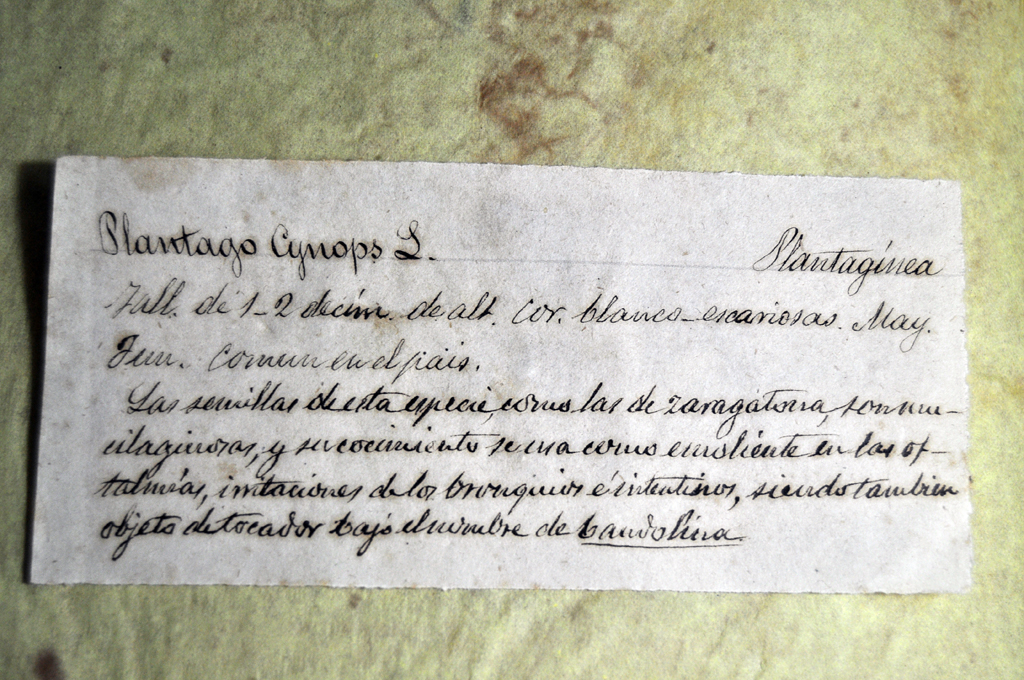 Plantago Cynops L. Plantagínea
Tall. de 1-2 decím. de alt. Cor. blanco-escariosas. May.
Jun. Comun en el pais.
Las semillas de esta especie, como las de zaragatona, son mu-
cilaginosas, y su cocimiento se usa como emoliente en las of-
talmías, irritaciones de los bronquios é intestinos, siendo tambien
objeto de tocador bajo el nombre de bandolina.